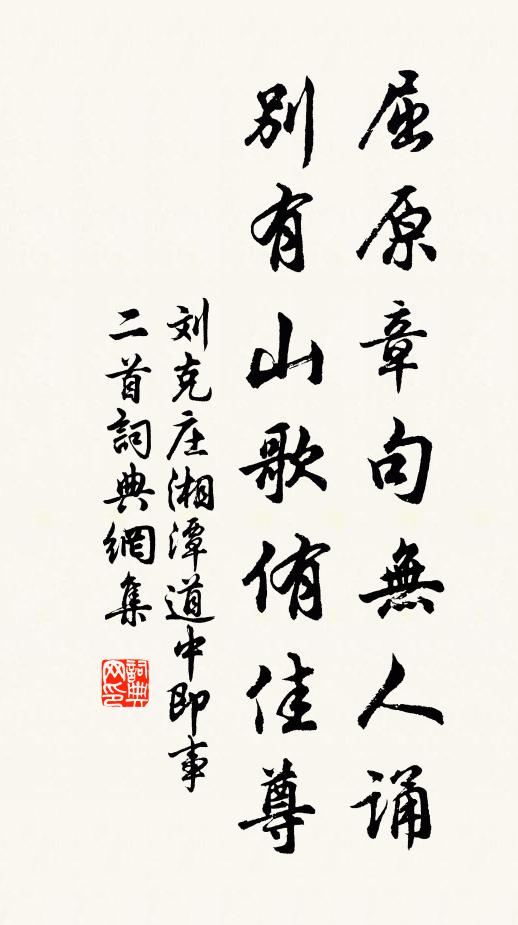 屈原章句無人誦
別有山歌侑佳尊
刘克庄湘潭道中即事
二首詞典網集
詞典
网印